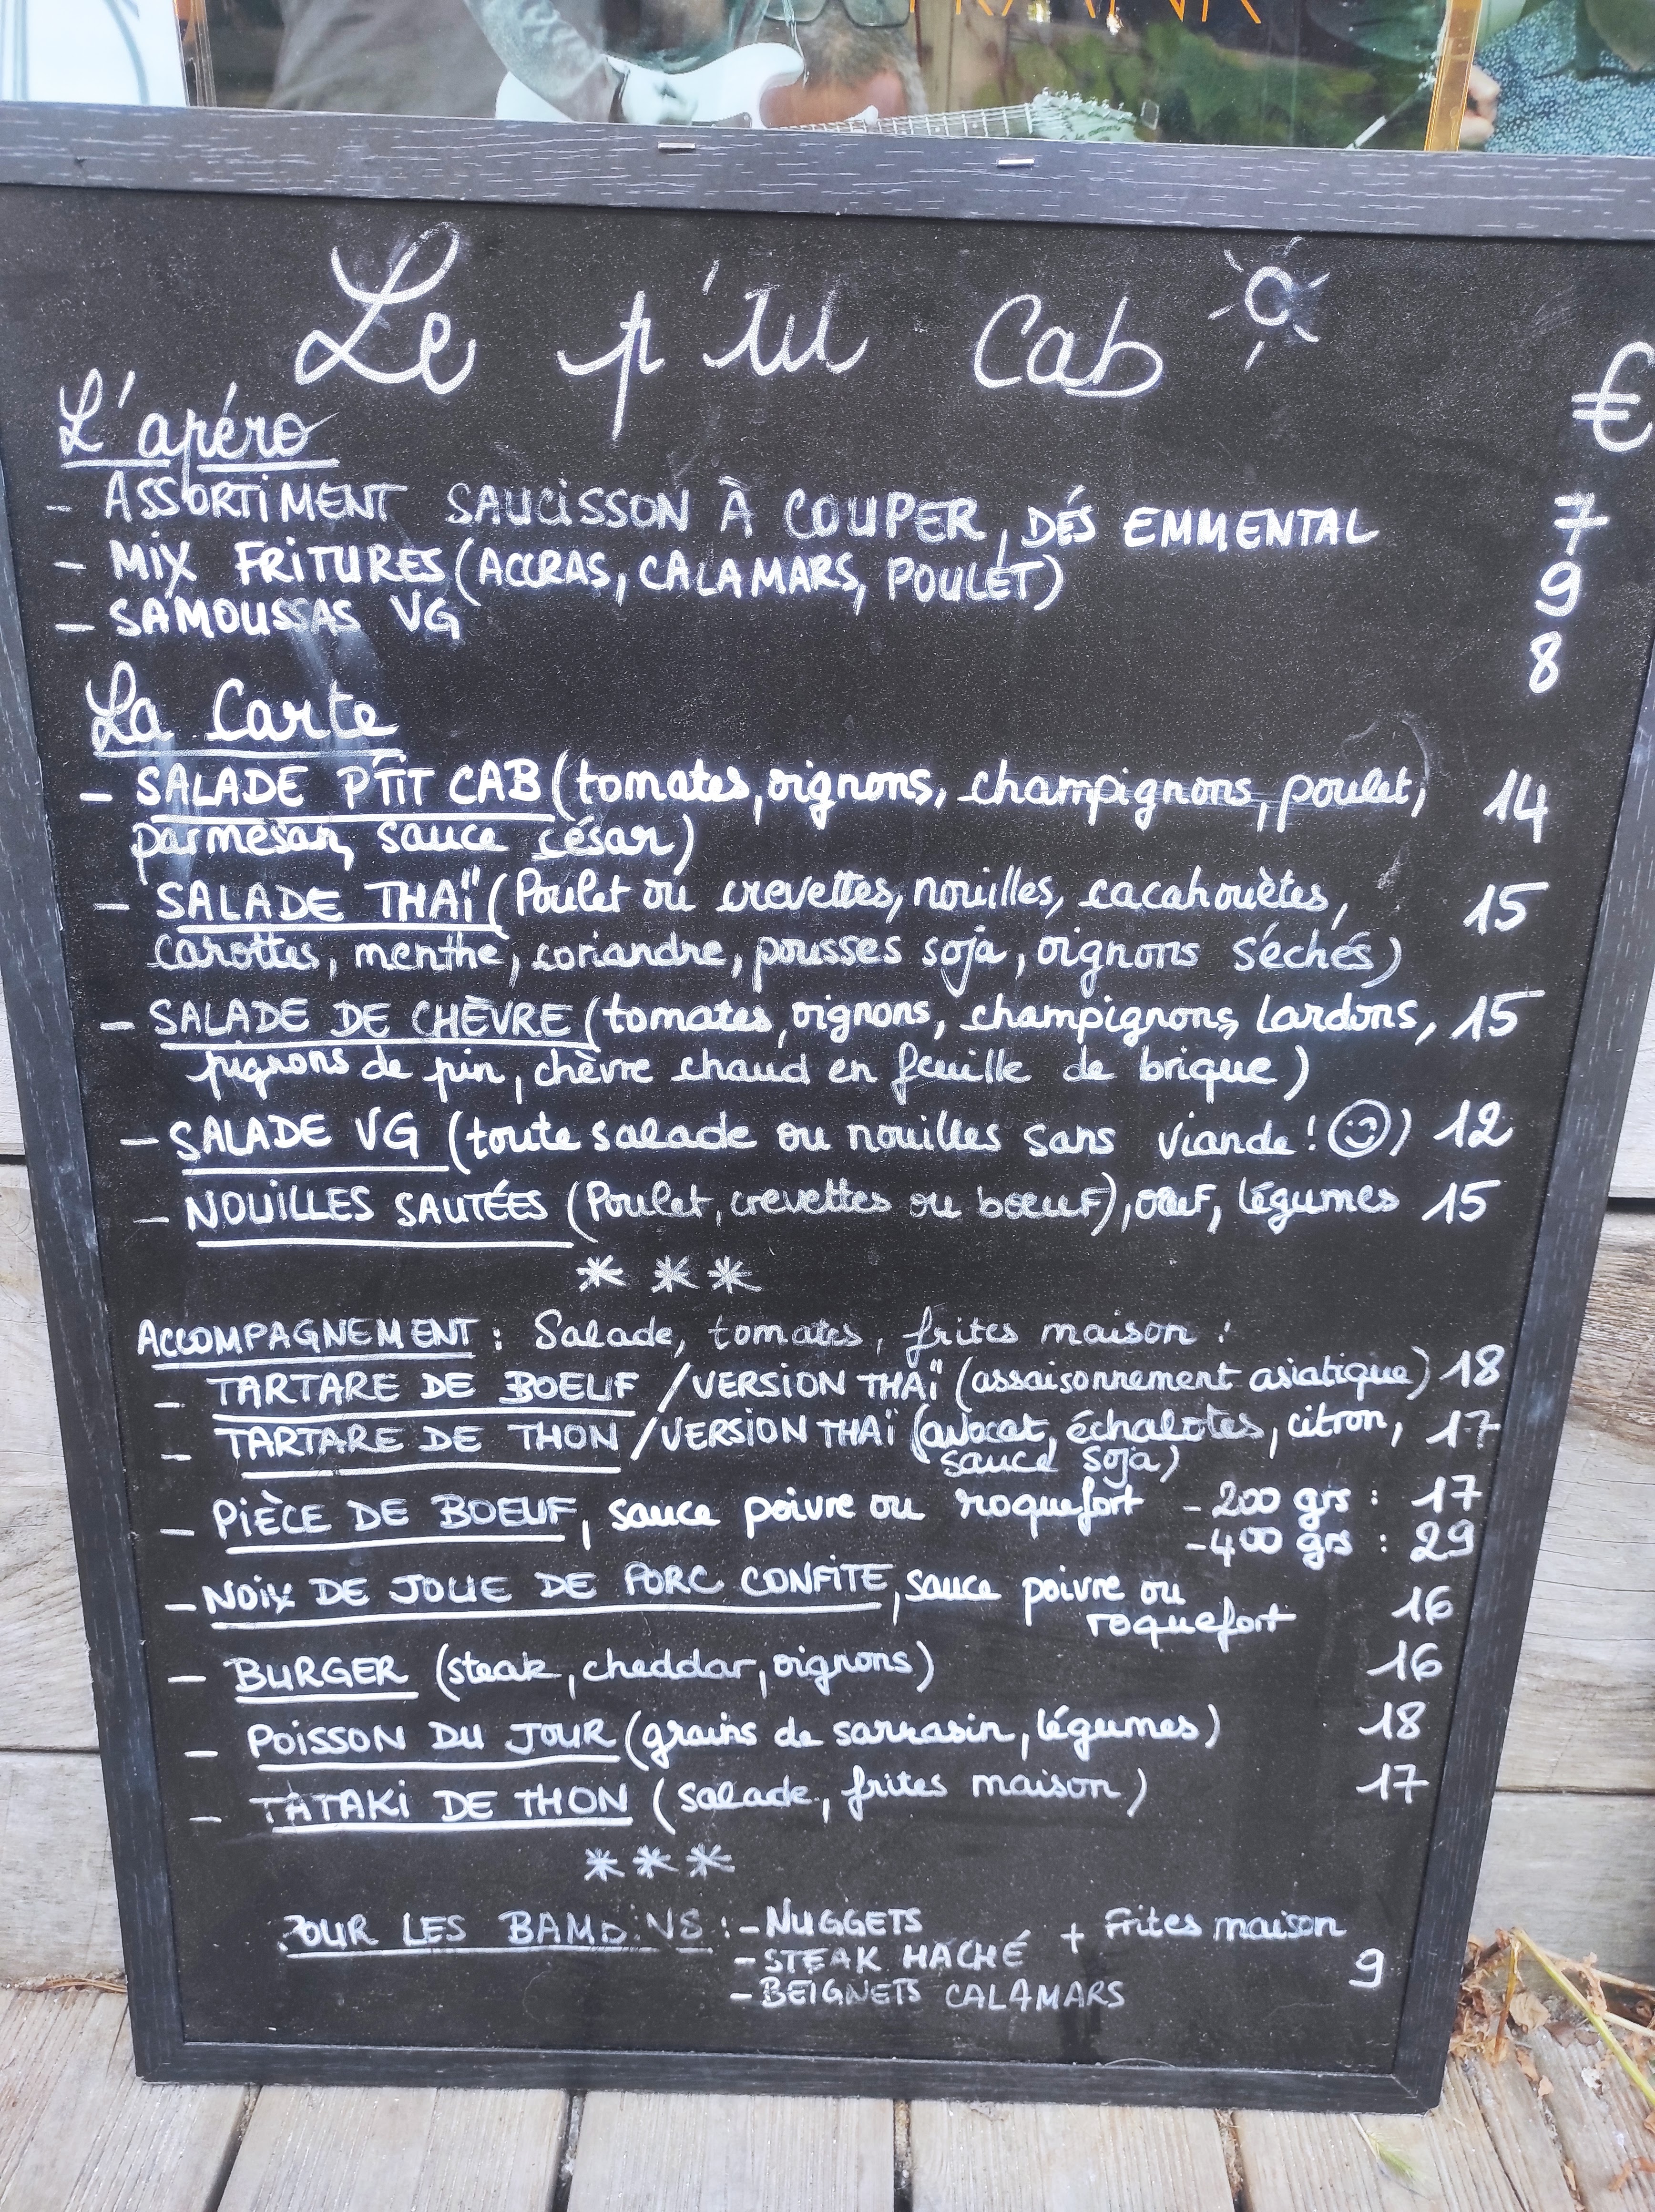 Le p'tit Cab
€
L'apéro
- ASSORTIMENT SAUCISSON À COUPER, DÉS EMMENTAL 7
- MIX FRITURES (ACCRAS, CALAMARS, POULET) 9
- SAMOUSSAS VG 8
La Carte
- SALADE P'TIT CAB (tomates, oignons, champignons, poulet, 14
parmesan, sauce césar)
- SALADE THAÏ (Poulet ou crevettes, nouilles, cacahouètes, 15
carottes, menthe, coriandre, pousses soja, oignons séchés)
- SALADE DE CHÈVRE (tomates, oignons, champignons, lardons, 15
pignons de pin, chèvre chaud en feuille de brique)
- SALADE VG (toute salade ou nouilles sans viande ! ☺) 12
- NOUILLES SAUTÉES (Poulet, crevettes ou bœuf), œuf, légumes 15
* * *
ACCOMPAGNEMENT : Salade, tomates, frites maison :
- TARTARE DE BOEUF / VERSION THAÏ (assaisonnement asiatique) 18
- TARTARE DE THON / VERSION THAÏ (avocat, échalotes, citron, 17
sauce soja)
- PIÈCE DE BOEUF, sauce poivre ou roquefort - 200 grs : 17
- 400 grs : 29
- NOIX DE JOUE DE PORC CONFITE, sauce poivre ou 16
roquefort
- BURGER (steak, cheddar, oignons) 16
- POISSON DU JOUR (grains de sarrasin, légumes) 18
- TATAKI DE THON (salade, frites maison) 17
* * *
POUR LES BAMBINS : - NUGGETS + Frites maison
- STEAK HACHÉ 9
- BEIGNETS CALAMARS